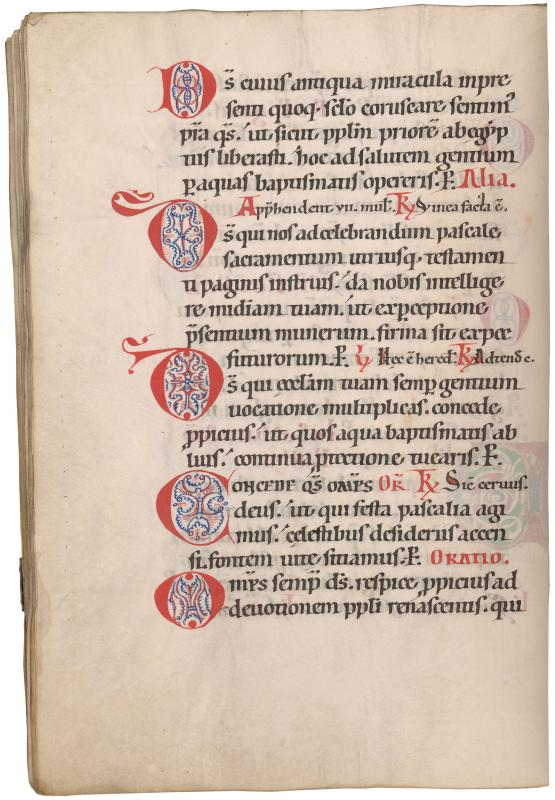 Ds̄ cuius antiqua miracula inpre
senti quoq; sclo coruscare sentim᷒
p̄ia qs̄. ut sicut pplm̄ priorē ab egyp
tiis liberasti. hoc ad salutem gentium
p aquas baptismatis opereris. P. Alia.
Appħendent. vii. mul. Ry Sy inea facta ē.
Ds̄ qui nos ad celebrandum pascale
sacramentum utriusq; testamen
ti paginis instruis. da nobis intellige
re m̄idiam tuam. ut ex pceptione
p̄sentium munerum. firma sit expec
P. L̄y Hec ē hered. Ry Adtende c.
Ds̄ qui eccl̄am tuam semp gentium
uocatione multiplicas. concede
ppicius. ut quos aqua baptismatis ab
luis. continua ptectione tuearis. P.
Concede qs̄ omp̄s OR̄ Ry Sic̄ ceruus.
deus. ut qui festa paschalia agi
mus. celestibus desideriis accen
si. fontem uite sitiamus. P. ORATIO.
Omp̄s semp̄ ds̄. respice ppicius ad
deuotionem ppl̄i renascentis. qui